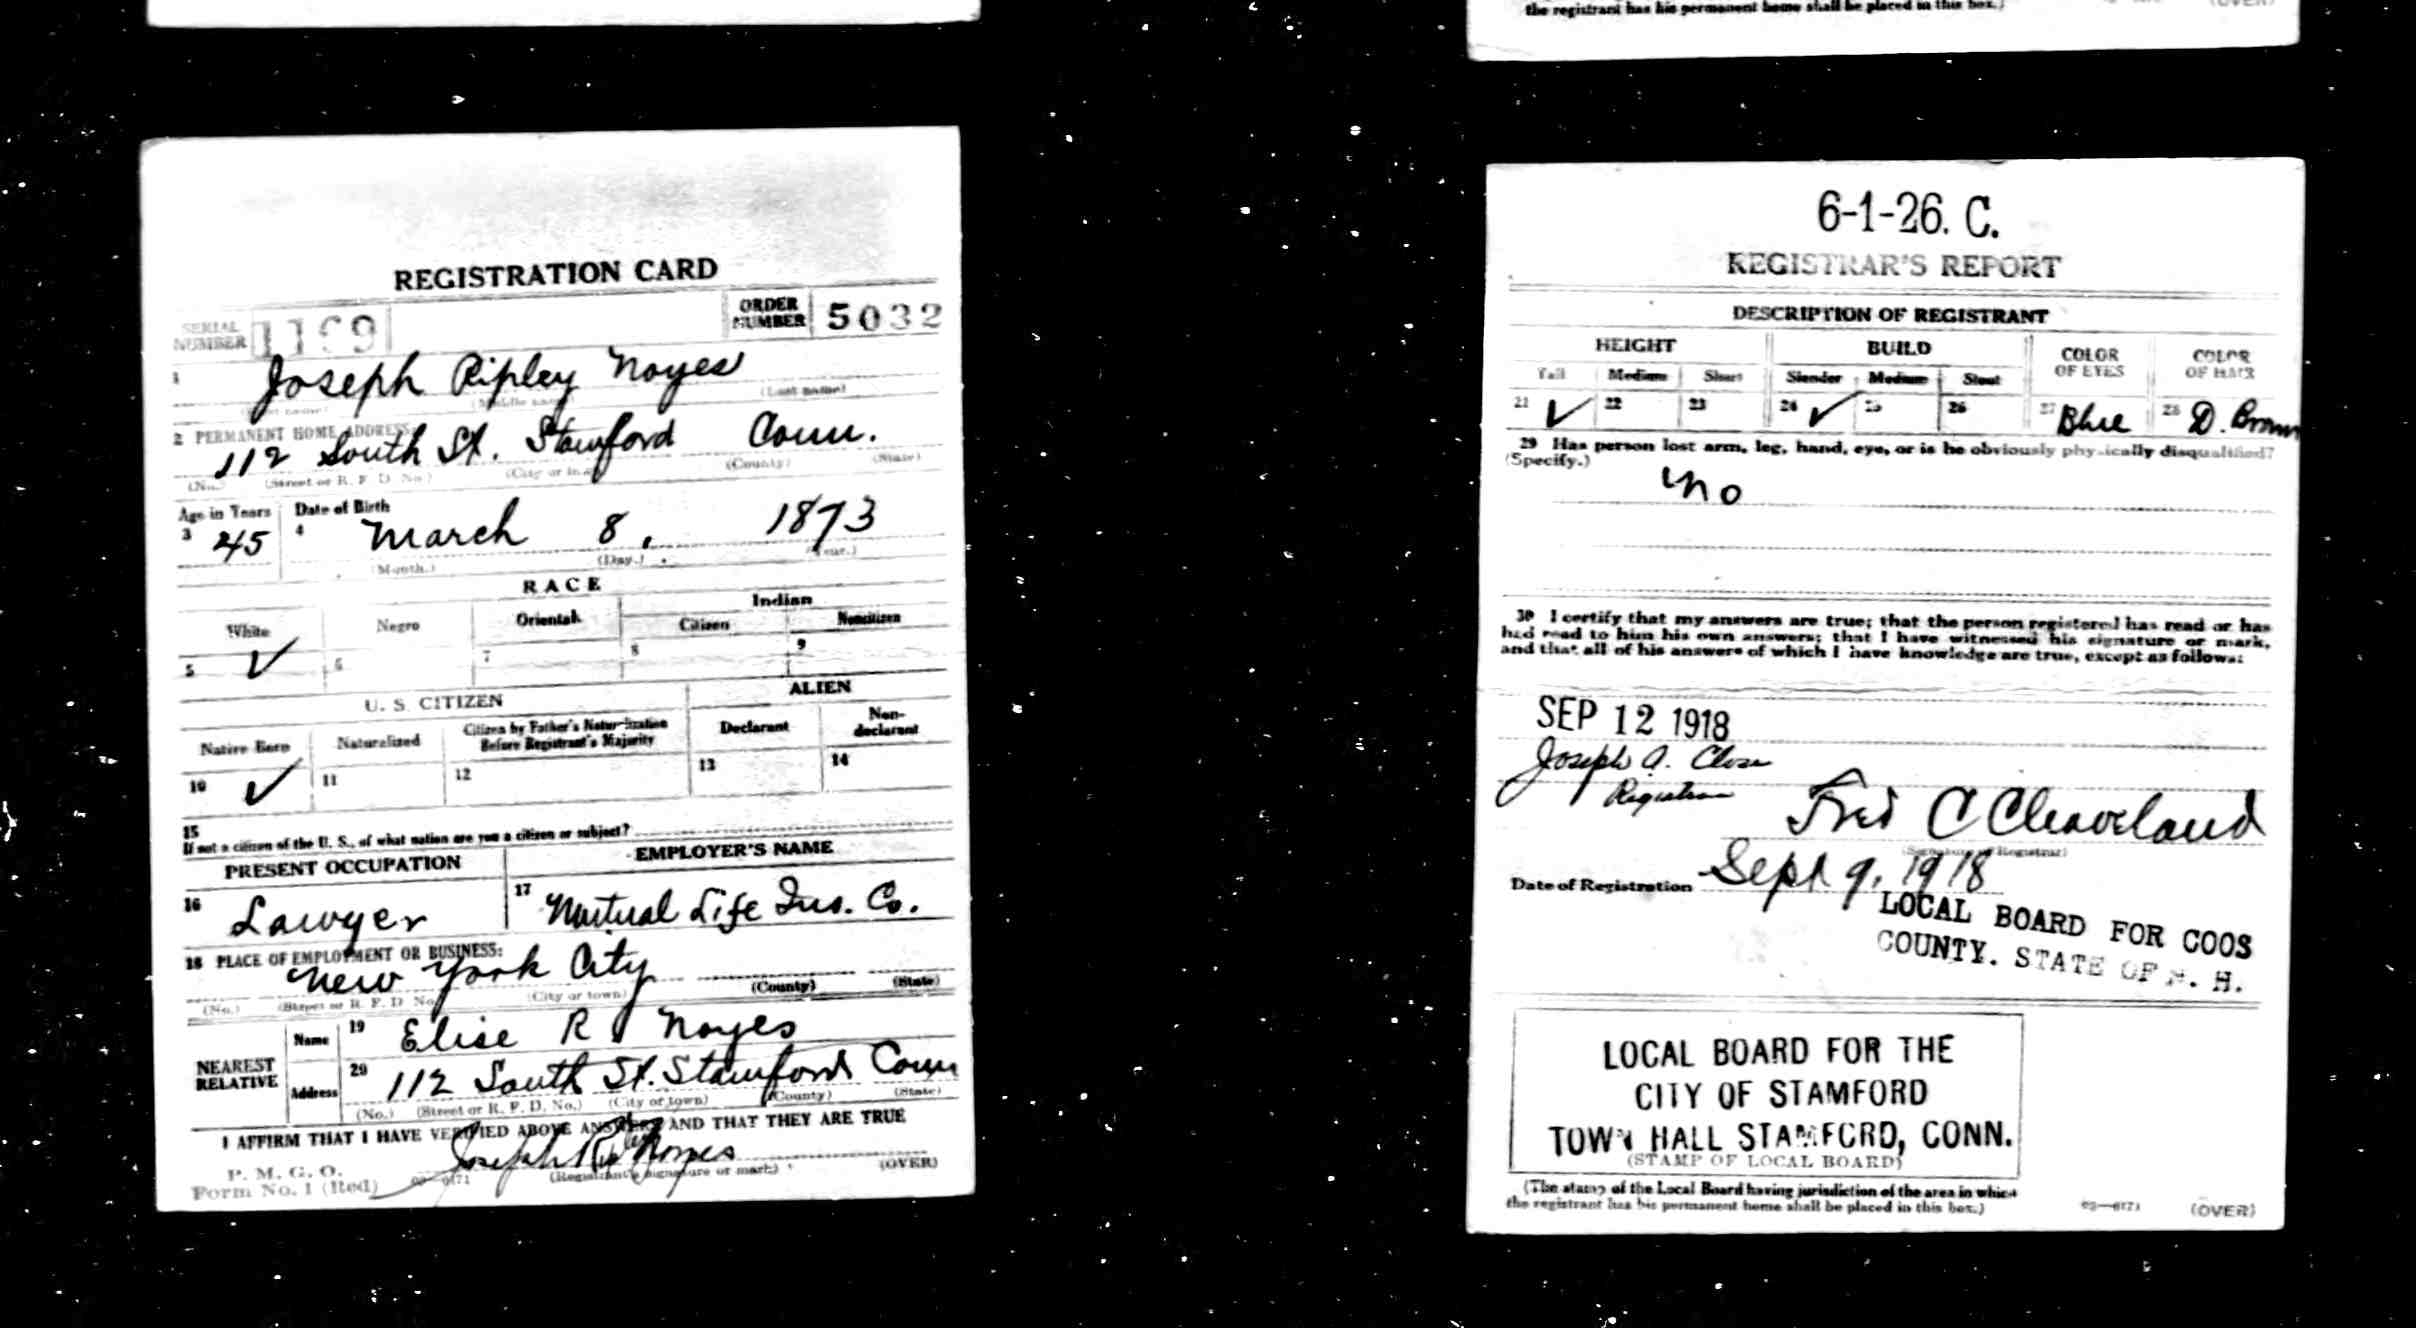 the registrant has his permanent home shall be placed in this box.)
(OVER)
REGISTRATION CARD
SERIAL NUMBER
ORDER NUMBER 5032
1 Joseph Ripley Noyes
(Middle name) (Last name)
2 PERMANENT HOME ADDRESS:
112 South St. Stamford Conn.
(No.) (Street or R. F. D. No.) (City or town) (County) (State)
Age in Years Date of Birth
3 45 4 March 8, 1873
(Month.) (Day.) (Year.)
RACE
White Negro Oriental Indian
Citizen Noncitizen
5 ✓ 6 7 8 9
U. S. CITIZEN ALIEN
Native Born Naturalized Citizen by Father's Naturalization Before Registrant's Majority Declarant Non-declarant
10 ✓ 11 12 13 14
15
If not a citizen of the U. S., of what nation are you a citizen or subject?
PRESENT OCCUPATION EMPLOYER'S NAME
16 Lawyer 17 Mutual Life Ins. Co.
18 PLACE OF EMPLOYMENT OR BUSINESS:
New York City
(No.) (Street or R. F. D. No.) (City or town) (County) (State)
NEAREST RELATIVE
Name 19 Elise R Noyes
Address 20 112 South St. Stamford Conn
(No.) (Street or R. F. D. No.) (City or town) (County) (State)
I AFFIRM THAT I HAVE VERIFIED ABOVE ANSWERS AND THAT THEY ARE TRUE
P. M. G. O.
Form No. 1 (Red)
Joseph Ripley Noyes
(Registrant's signature or mark)
(OVER)
6-1-26. C.
REGISTRAR'S REPORT
DESCRIPTION OF REGISTRANT
HEIGHT BUILD COLOR OF EYES COLOR OF HAIR
Tall Medium Short Slender Medium Stout
21 ✓ 22 23 24 ✓ 25 26 27 Blue 28 D. Brown
29 Has person lost arm, leg, hand, eye, or is he obviously physically disqualified?
(Specify.)
No
30 I certify that my answers are true; that the person registered has read or has
had read to him his own answers; that I have witnessed his signature or mark,
and that all of his answers of which I have knowledge are true, except as follows:
SEP 12 1918
Joseph A. Close
Registrar
Fred C Cleaveland
(Signature of Registrar)
Date of Registration Sept 9, 1918
LOCAL BOARD FOR COOS
COUNTY. STATE OF N. H.
LOCAL BOARD FOR THE
CITY OF STAMFORD
TOWN HALL STAMFORD, CONN.
(STAMP OF LOCAL BOARD)
(The stamp of the Local Board having jurisdiction of the area in which
the registrant has his permanent home shall be placed in this box.)
03—6171 (OVER)